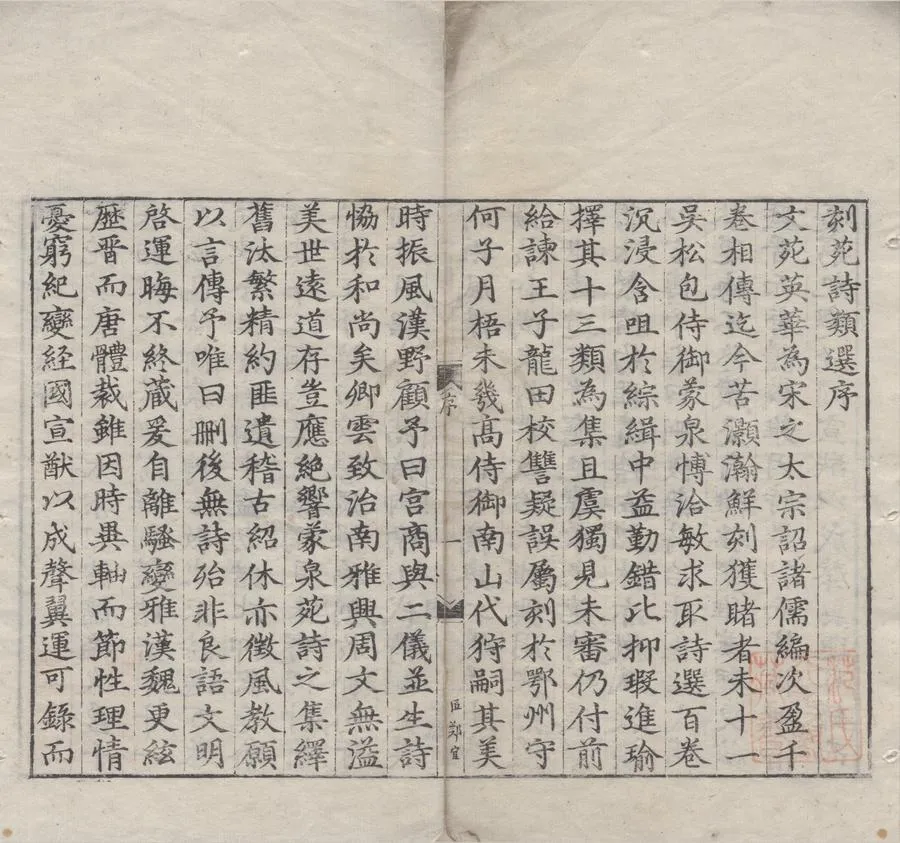 刻苑詩類選序
文苑英華為宋之太宗詔諸儒編次盈千
卷相傳迄今苦灝瀚鮮刻獲睹者未十一
吳松包侍御蒙泉愽洽敏求取詩選百卷
沉浸含咀於綜緝中益勤錯比抑瑕進瑜
擇其十三類為集且虞獨見未審仍付前
給諫王子龍田校讐疑誤屬刻於鄂州守
何子月梧未幾髙侍御南山代狩嗣其美
序
一
匠鄭宜
時振風漢野顧予曰宫商與二儀並生詩
恊於和尚矣卿雲致治南雅興周文無溢
美世遠道存豈應絶響蒙泉苑詩之集繹
舊汰繁精約匪遺稽古紹休亦徵風教願
以言傳予唯曰刪後無詩殆非良語文明
啓運晦不終蔵爰自離騷變雅漢魏更絃
歴晋而唐體裁雖因時異軸而節性理情
憂窮紀變経國宣猷以成聲翼運可錄而